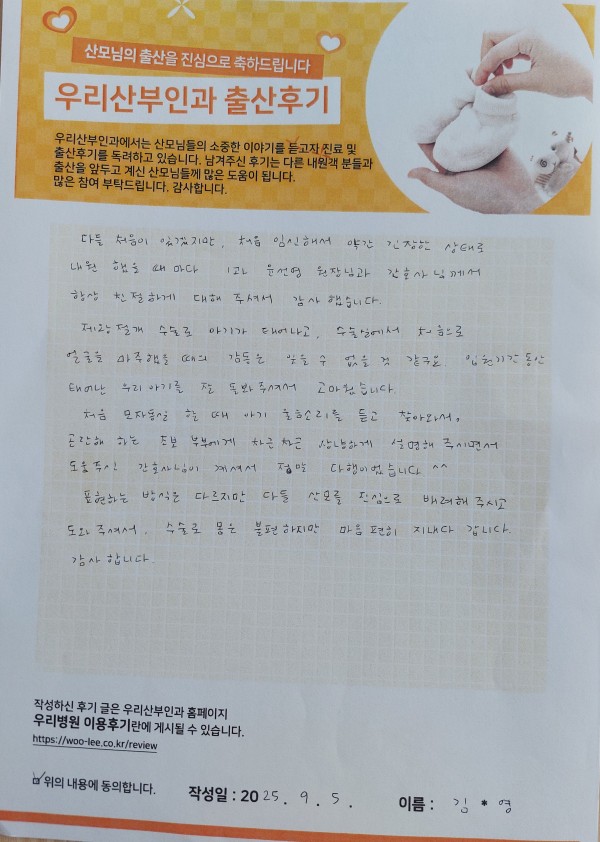 산모님의 출산을 진심으로 축하드립니다
우리산부인과 출산후기
우리산부인과에서는 산모님들의 소중한 이야기를 듣고자 진료 및
출산후기를 독려하고 있습니다. 남겨주신 후기는 다른 내원객 분들과
출산을 앞두고 계신 산모님들께 많은 도움이 됩니다.
많은 참여 부탁드립니다. 감사합니다.
다들 처음이 있겠지만, 처음 임신해서 약간 긴장한 상태로
내원 했을 때 마다 1과 윤선영 원장님과 간호사님께서
항상 친절하게 대해 주셔서 감사 했습니다.
제왕절개 수술로 아기가 태어나고, 수술실에서 처음으로
얼굴을 마주했을 때의 감동은 잊을 수 없을 것 같구요. 입원기간 동안
태어난 우리 아기를 잘 돌봐주셔서 고마웠습니다.
처음 모자동실 할 때 아기 울음소리를 듣고 찾아와서,
곤란해 하는 초보 부부에게 차근차근 상냥하게 설명해 주시면서
도움주신 간호사님이 계셔서 정말 다행이었습니다 ^^
표현하는 방식은 다르지만 다들 산모를 진심으로 배려해 주시고
도와 주셔서, 수술로 몸은 불편하지만 마음 편히 지내다 갑니다.
감사 합니다.
작성하신 후기 글은 우리산부인과 홈페이지
우리병원 이용후기란에 게시될 수 있습니다.
https://woo-lee.co.kr/review
위의 내용에 동의합니다.
작성일 : 2025. 9. 5.
이름 : 김 * 영